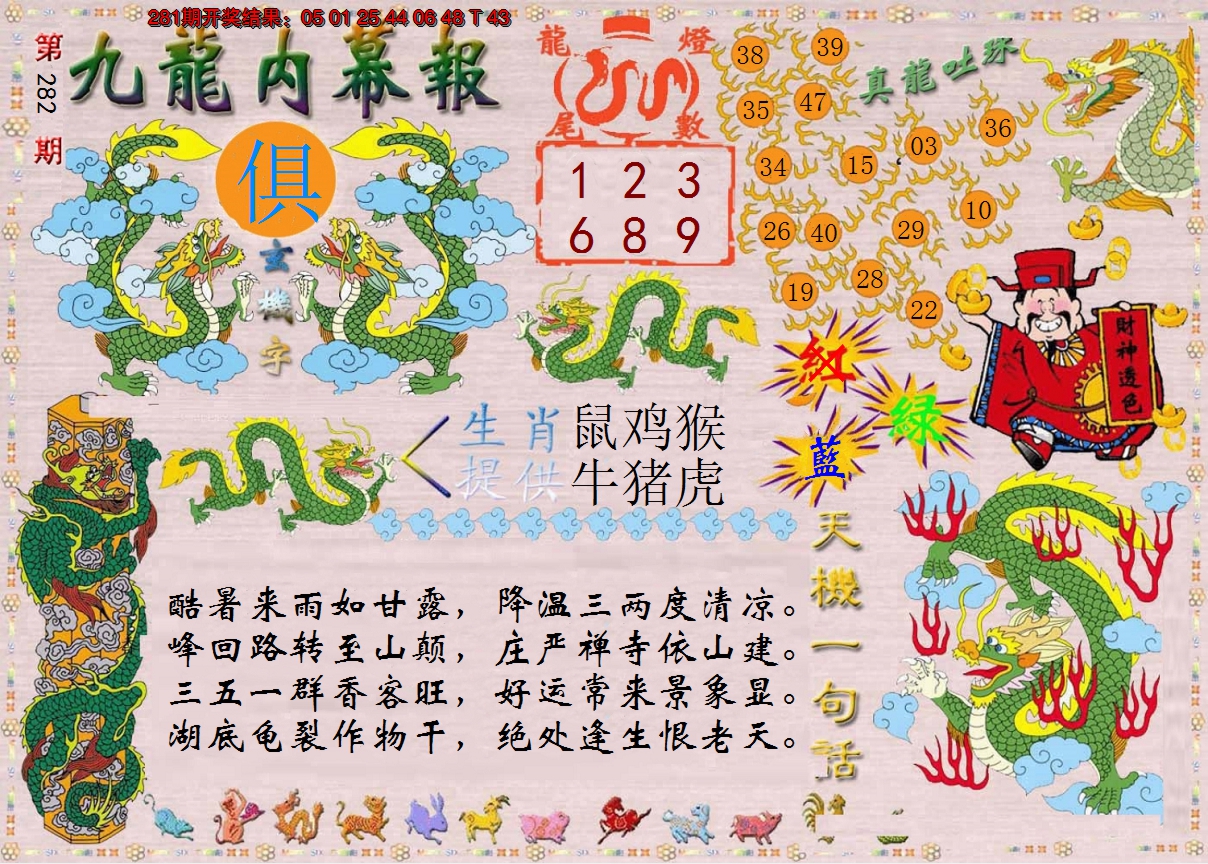 281期开奖结果：05 01 25 44 06 48 T 43
第282期
九龍内幕報
俱
玄機字
龍燈
尾數
1 2 3
6 8 9
真龍吐珠
38 39
35 47
34 15 03 36
26 40 29 10
19 28 22
財神透色
紅
綠
藍
生肖 鼠鸡猴
提供 牛猪虎
天機一句話
酷暑来雨如甘露，降温三两度清凉。
峰回路转至山颠，庄严禅寺依山建。
三五一群香客旺，好运常来景象显。
湖底龟裂作物干，绝处逢生恨老天。